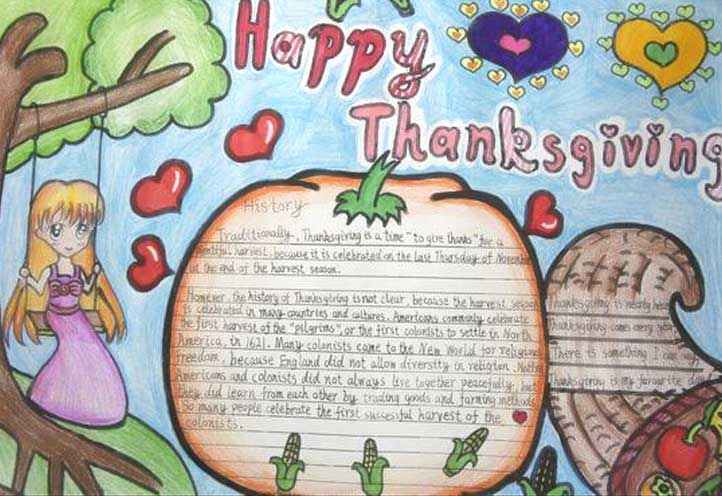 Happy
Thanksgiving
History
Traditionally, Thanksgiving is a time "to give thanks" for a
harvest, because it is celebrated on the last Thursday of November
at the end of the harvest season.
However, the history of Thanksgiving is not clear, because the harvest season
is celebrated in many countries and cultures. Americans commonly celebrate
the first harvest of the "pilgrims", or the first colonists to settle in North
America, in 1621. Many colonists came to the New World for religious
Freedom, because England did not allow diversity in religion.
Americans and colonists did not always live together peacefully, but
they did learn from each other by trading goods and farming methods.
So many people celebrate the first successful harvest of the
colonists.
Thanksgiving is nearly here
Thanksgiving comes every year
There is something I can
Thanksgiving is my favourite